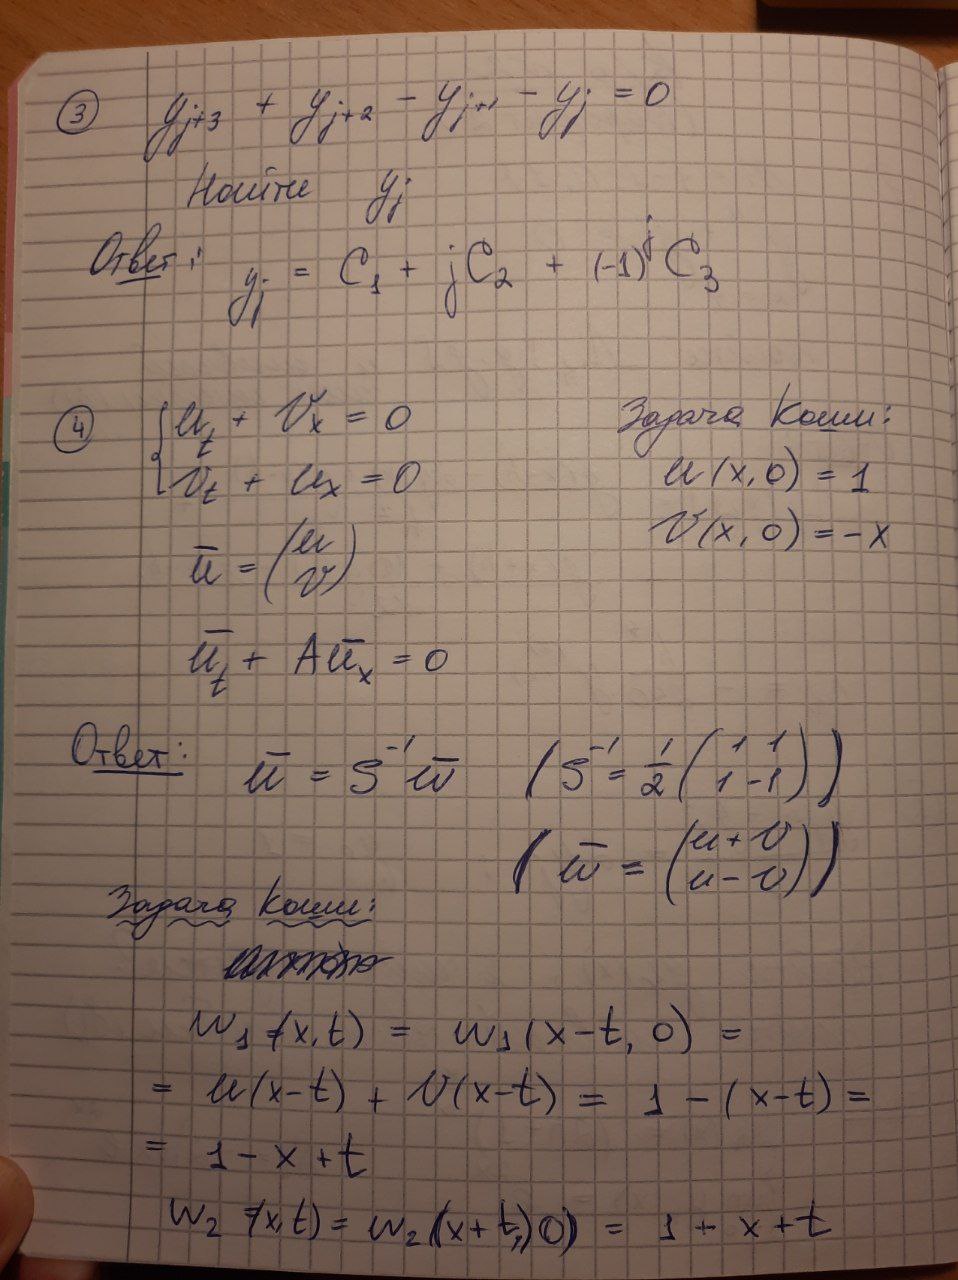 ③ y_{j+3} + y_{j+2} - y_{j+1} - y_j = 0
Найти y_j
Ответ: y_j = C_1 + jC_2 + (-1)^j C_3
④ { u_t + v_x = 0
v_t + u_x = 0
Задача Коши:
u(x, 0) = 1
v(x, 0) = -x
ū = (u v)
ū_t + Aū_x = 0
Ответ: ū = S^{-1} w̄ (S^{-1} = 1/2 (1 1 1 -1))
(w̄ = (u+v u-v))
Задача Коши:
w_1(x,t) = w_1(x-t, 0) =
= u(x-t) + v(x-t) = 1 - (x-t) =
= 1 - x + t
w_2(x,t) = w_2(x+t, 0) = 1 + x + t